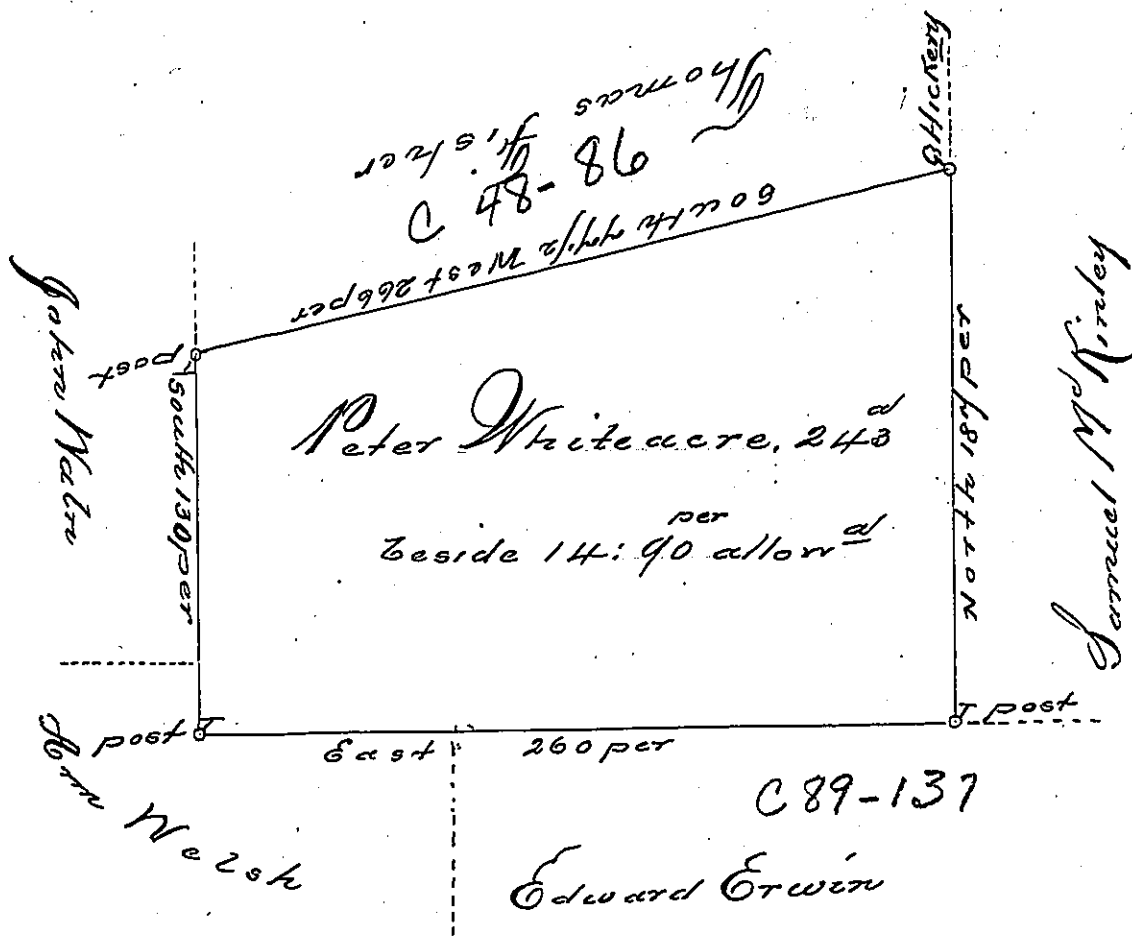 Thomas
Fisher
C 48-86
B Hickery
South 77 1/2 West 266 per
John Waln
post
South 130 per
Peter Whiteacre, 243 a
beside 14:90 per allow d
North 187 per
Samuel McKinley
post
East 260 per
post
Ann Welsh
C 89-137
Edward Erwin